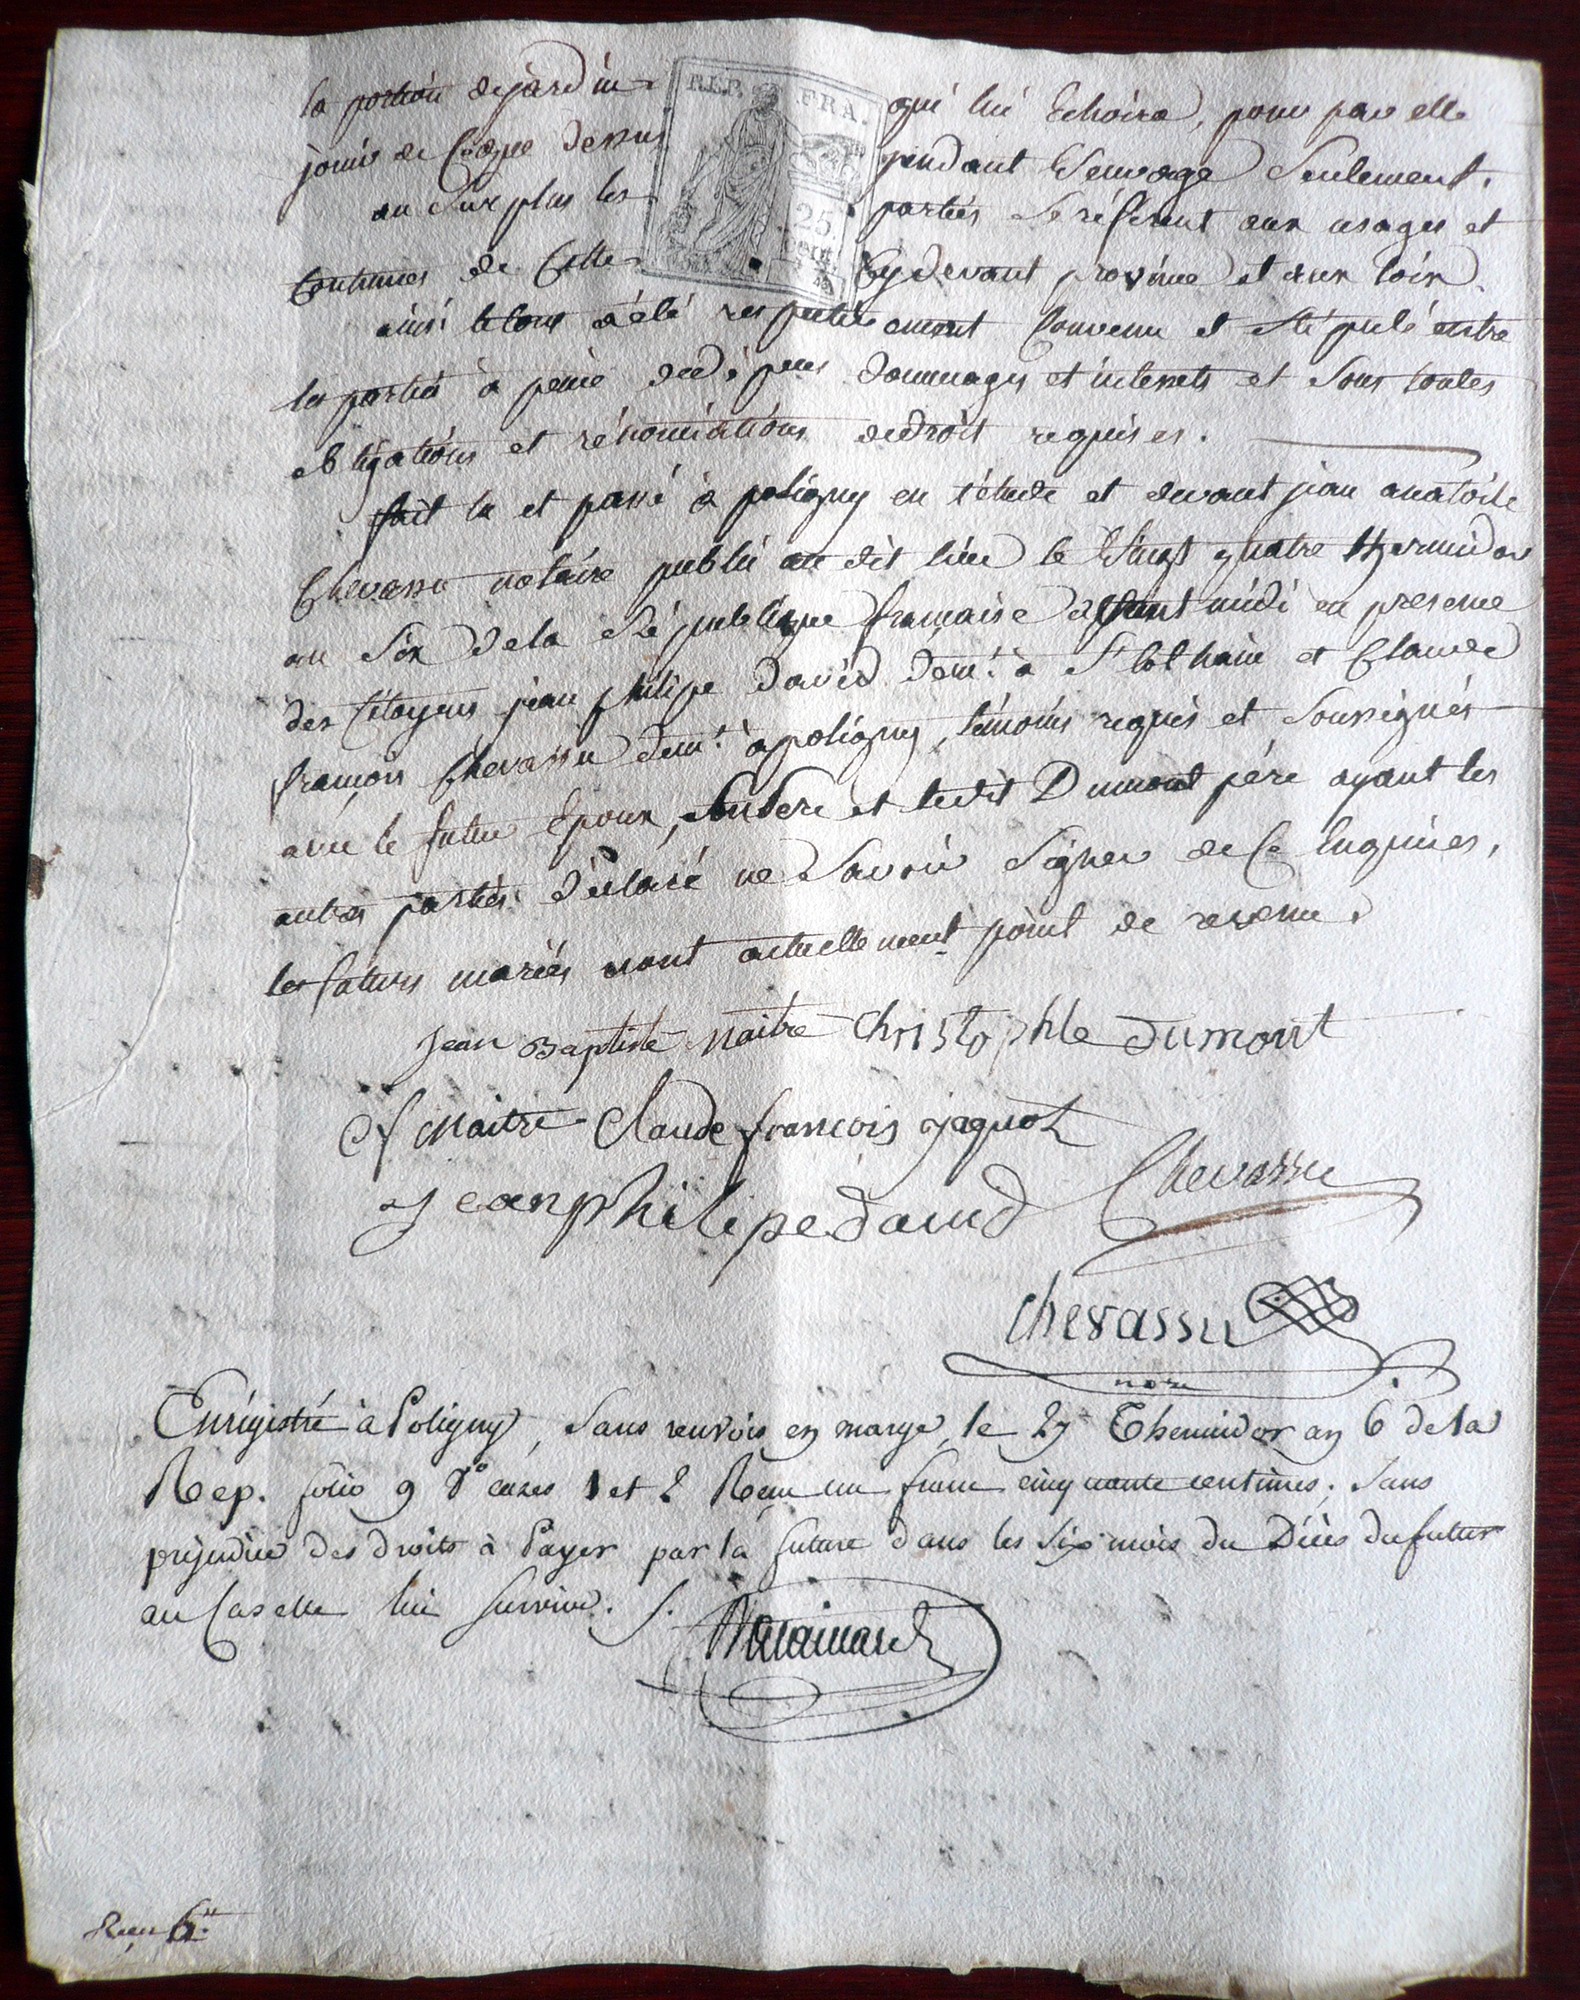 la portion de jardin qui lui Echoira, pour par elle
jouir de Ce que dessus pendant Sa viduité Seulement.
au Surplus les parties Se réferent aux usages et
Coutumes de Cette Cydevant province et aux loix.
ainsi le tout a été respectivement Convenu et Stipulé entre
les parties à peine de dépens dommages et interrets et Sous toutes
obligations et rénonciations de droit requises.
fait lu et passé à poligny en l'étude et devant jean anatoile
Chevassu notaire public au dit lieu le Vingt quatre thermidor
an Six de la République francaise avant midi en presence
des Citoyens jean philipe david dem.t à St lothain et Claude
françois Chevassu dem.t à poligny, témoins requis et Soussignés
avec le futur Epoux, et ledit Dumont pére ayant les
autres parties déclaré ne Savoir Signer de Ce Enquises,
les futurs mariés n'ont actuellement point de revenu.
Jean Baptiste Maitre Christophle dumont
Cf Maitre Claude francois jaquot
Jean philipe david Chevassu
Chevassu
nore
Enrégistré à Poligny, Sans renvois en marge, le 27 Themidor an 6 de la
Rep. folio 9 Vo cazes 1 et 2 Reçu un franc cinquante centimes, Sans
prejudice des droits à Payer par la future dans les Six mois du Décès du futur
au Cas elle lui Survive. /.
Reçu 6.
REP. FRA.
25
cent.